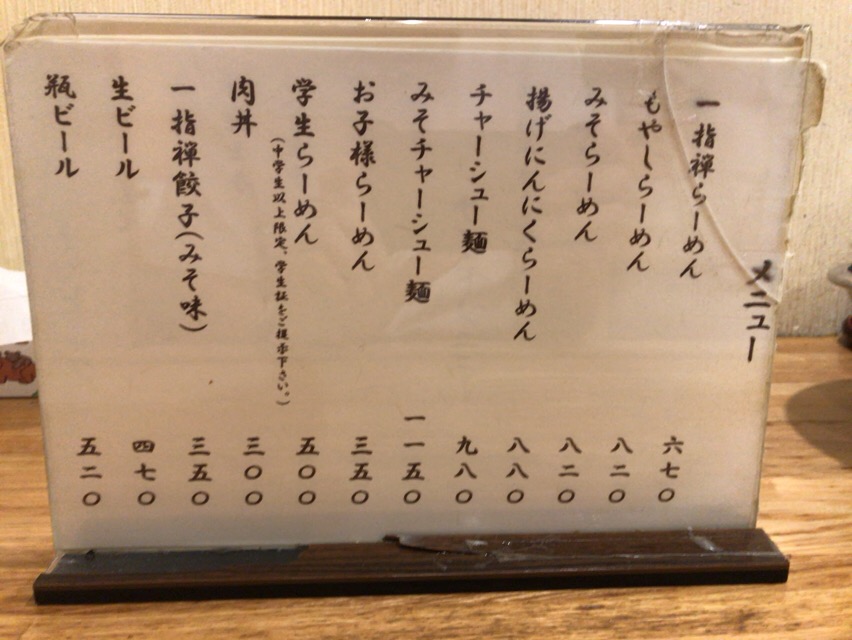 メニュー
一指禅らーめん 六七〇
もやしらーめん 八二〇
みそらーめん 八二〇
揚げにんにくらーめん 八八〇
チャーシュー麺 九八〇
みそチャーシュー麺 一一五〇
お子様らーめん 三五〇
学生らーめん 五〇〇
(中学生以上限定、学生証をご提示下さい。)
肉丼 三〇〇
一指禅餃子(みそ味) 三五〇
生ビール 四七〇
瓶ビール 五二〇